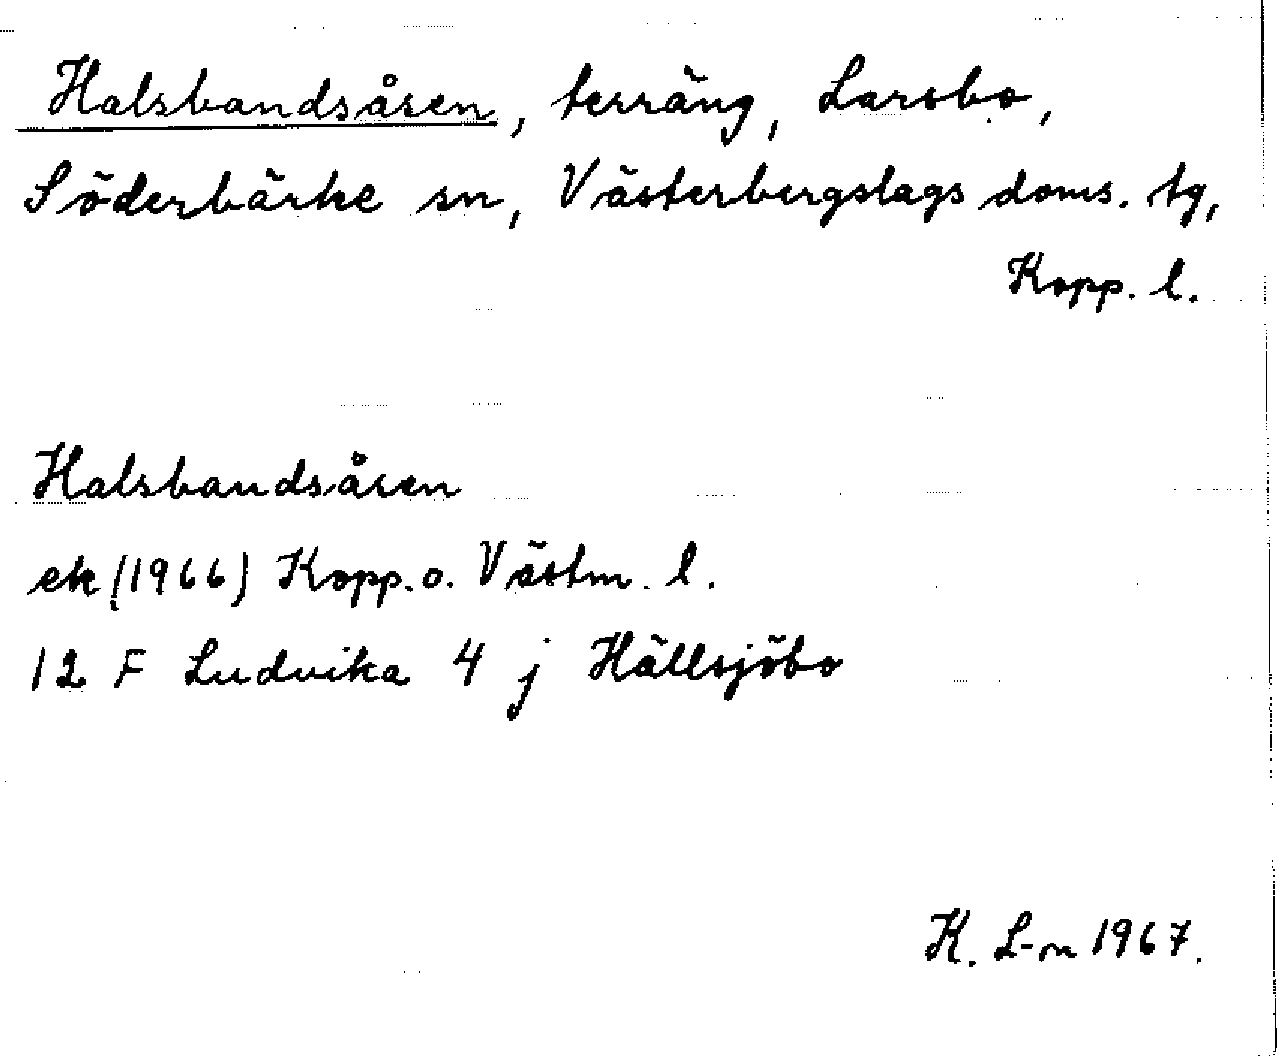 Halsbandsåsen, terräng, Larsbo,
Söderbärke sn, Västerbergslags doms. tg,
Kopp. l.
Halsbandsåsen
ek (1966) Kopp. o. Västm. l.
12 F Ludvika 4 j Hällsjöbo
K. L-n 1967.